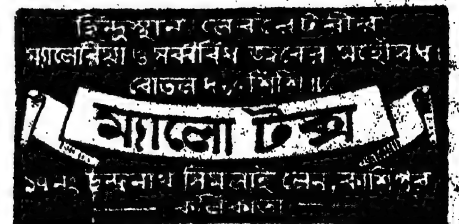 হিন্দুস্থান লেবরেটরীর
ম্যালেরিয়া ও সর্ব্ববিধ জ্বরের মহৌষধ।
বোতল ৸৹ শিশি ॥৹
ম্যালো টক্স
১৭নং চন্দ্রনাথ সিমলাই লেন, কাশিপুর
কলিকাতা